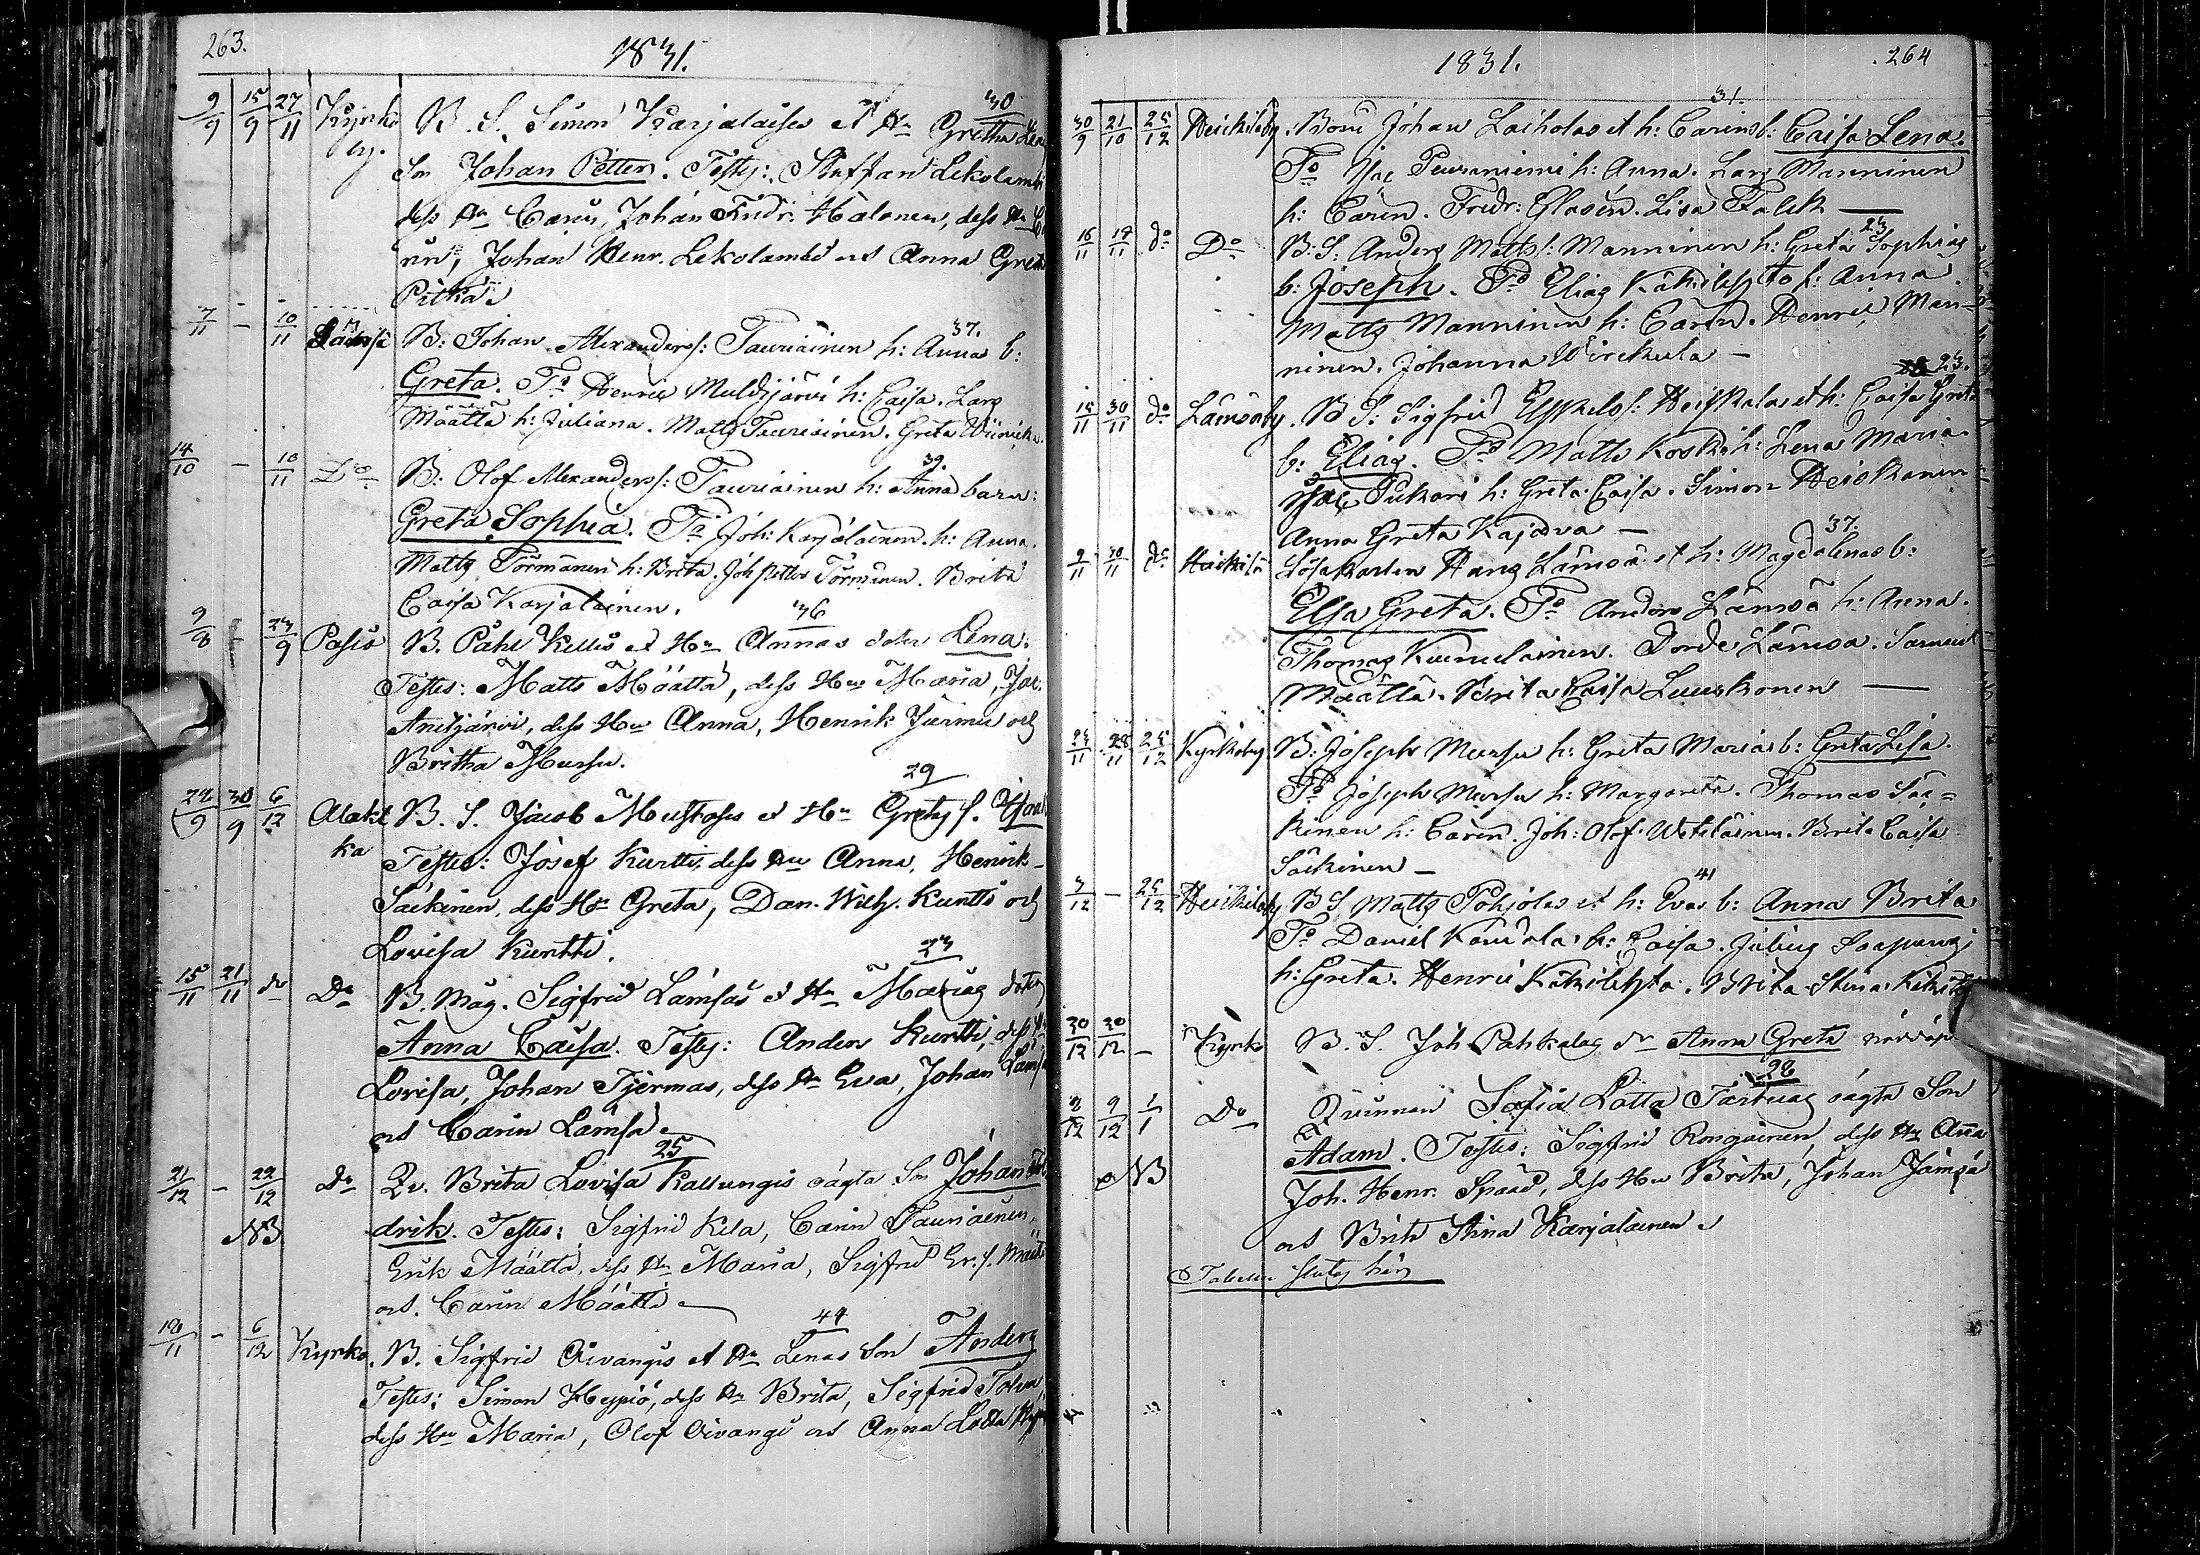 263.
1831.
9/9 15/9 27/11 Kyrko by. B. S. Simon Karjalaises et Hu Gretha Lena 30
Son Johan Petter. Testes: Staffan Lekolambi
dess Hu Carin, Johan Fridr. Halonen, dess Hu Ca
rin, Johan Henr. Lekolambi och Anna Greta
Pitkä.
7/11 – 10/11 B: Johan Alexanders: Tauriainen h: Annas b: 37.
Greta. To Henric Muldijärvi h: Caisa. Lars
Määttä h: Juliana. Matts Tauriainen. Greta
14/10 – 10/11 Do B: Olof Alexanders: Tauriainen h: Anna barn: 39.
Greta Sophia. To Joh: Karjalainen. h: Anna.
Matts Törmänen h: Brita. Joh Petter Törmänen. Brita
Caisa Karjalainen.
9/8 – 23/9 Posio B. Påhl Kellis et Hu Annas doter Lena. 36
Testes: Matts Määttä, dess Hu Maria, Jac.
Anetjärvi, dess Hu Anna, Henrik Jurmu och
Britha Mursu.
29/9 30/9 6/12 Alakit ka B. S. Jacob Mustoses et Hu Gretas s. 29
Testes: Josef Kurtti, dess Hu Anna, Henrik
Säckinen, dess Hu Greta, Dan. Wilh. Kurtti och
Lovisa Kurtti.
15/11 21/11 do Do B. Måg. Sigfrid Lämsäs et Hu Marias doter 23
Anna Caisa. Testes: Anders Kurtti, dess Hu
Lovisa, Johan Tjermas, dess Hu Eva, Johan Lämsä
och Carin Lämsä.
21/12 – 29/12 Do Qv. Brita Lovisa Kallungis oägta Son Johan 25
NB drik. Testes: Sigfrid Kela, Carin Tauriainen,
Erik Määttä, dess Hu Maria, Sigfrid Er. s. Määttä
och Carin Määttä
18/11 – 6/12 Kyrko. B. Sigfrid Oivangis et Hu Lenas Son Anders 44
Testes: Simon Hyppiö, dess Hu Brita, Sigfrid Tolva
dess Hu Maria, Olof Oivangi och Anna Lotta
1831. 264
30/9 21/10 25/12 Heikiläby. Bon Johan Laiholas et h: Carins b: Caisa Lena. 31.
To Jac Peuraniemi h: Anna. Lars Manninen
h: Carin. Fredr: Glasén. Lisa Falck
16/11 19/11 do Do B: S: Anders Matts: Manninen h: Greta Sophias 23
b: Joseph. To Elias Käkilehto h: Anna
Matts Manninen h: Carin. Henric Man-
ninen. Johanna Wirckula –
15/11 30/11 do Lämsäby. B S: Sigfrid Heiskalas et h: Caisa Greta 23.
b: Elias. To Matts Koski h: Lena Maria.
Jac Pukari h: Greta Caisa. Simon Heiskanen
Anna Greta Kajava –
9/11 30/11 do Lösekarlen Hans Lämsä et h: Magdalenas b: 37.
Elsa Greta. To Anders Lämsä h: Anna.
Thomas Kumulainen. Lämsä. Samuel
Määttä. Brita Caisa Luuskonen
24/11 28/11 25/12 Kyrkoby B: Joseph Mursu h: Greta Marias b: Greta Lisa.
To Joseph Mursu h: Margareta. Thomas Säc=
kinen h: Carin. Joh: Olof Weteläinen. Brita Caisa
Säckinen –
3/12 – 25/12 Heikiläby B S Matts Pohjolas et h: Evas b: Anna Brita 41
To Daniel h: Caisa. Julius Saapunqi
h: Greta. Henric Käkilehto. Brita Stina
20/12 20/12 – Kyrko B. S. Joh Pahkalas dr Anna Greta nöddöpt
2/12 9/12 1/1 Do Qvinnan Sofia Lotta oägta Son 28
NB Adam. Testes: Sigfrid Rongainen, dess Hu Anna
Joh. Henr. Spaad, dess Hu Brita, Johan Jämsä
och Brita Stina Karjalainen
Tabellen slutas här